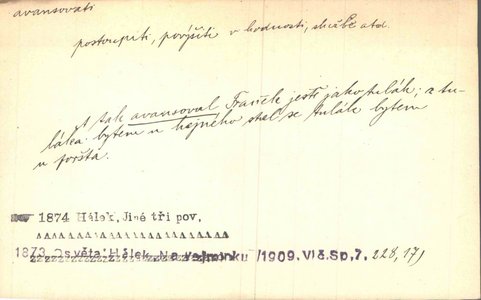 avansovati
postoupiti, povýšiti v hodnosti, službě atd.
A tak avansoval Francek ještě jako tulák; a tu-
láka bytem u hajného stal se tulák bytem
u foršta.
1874 Hálek, Jiné tři pov.
1873 Osvěta Hálek, Na vejminku /1909. Vlč.Sp,7, 228, 171